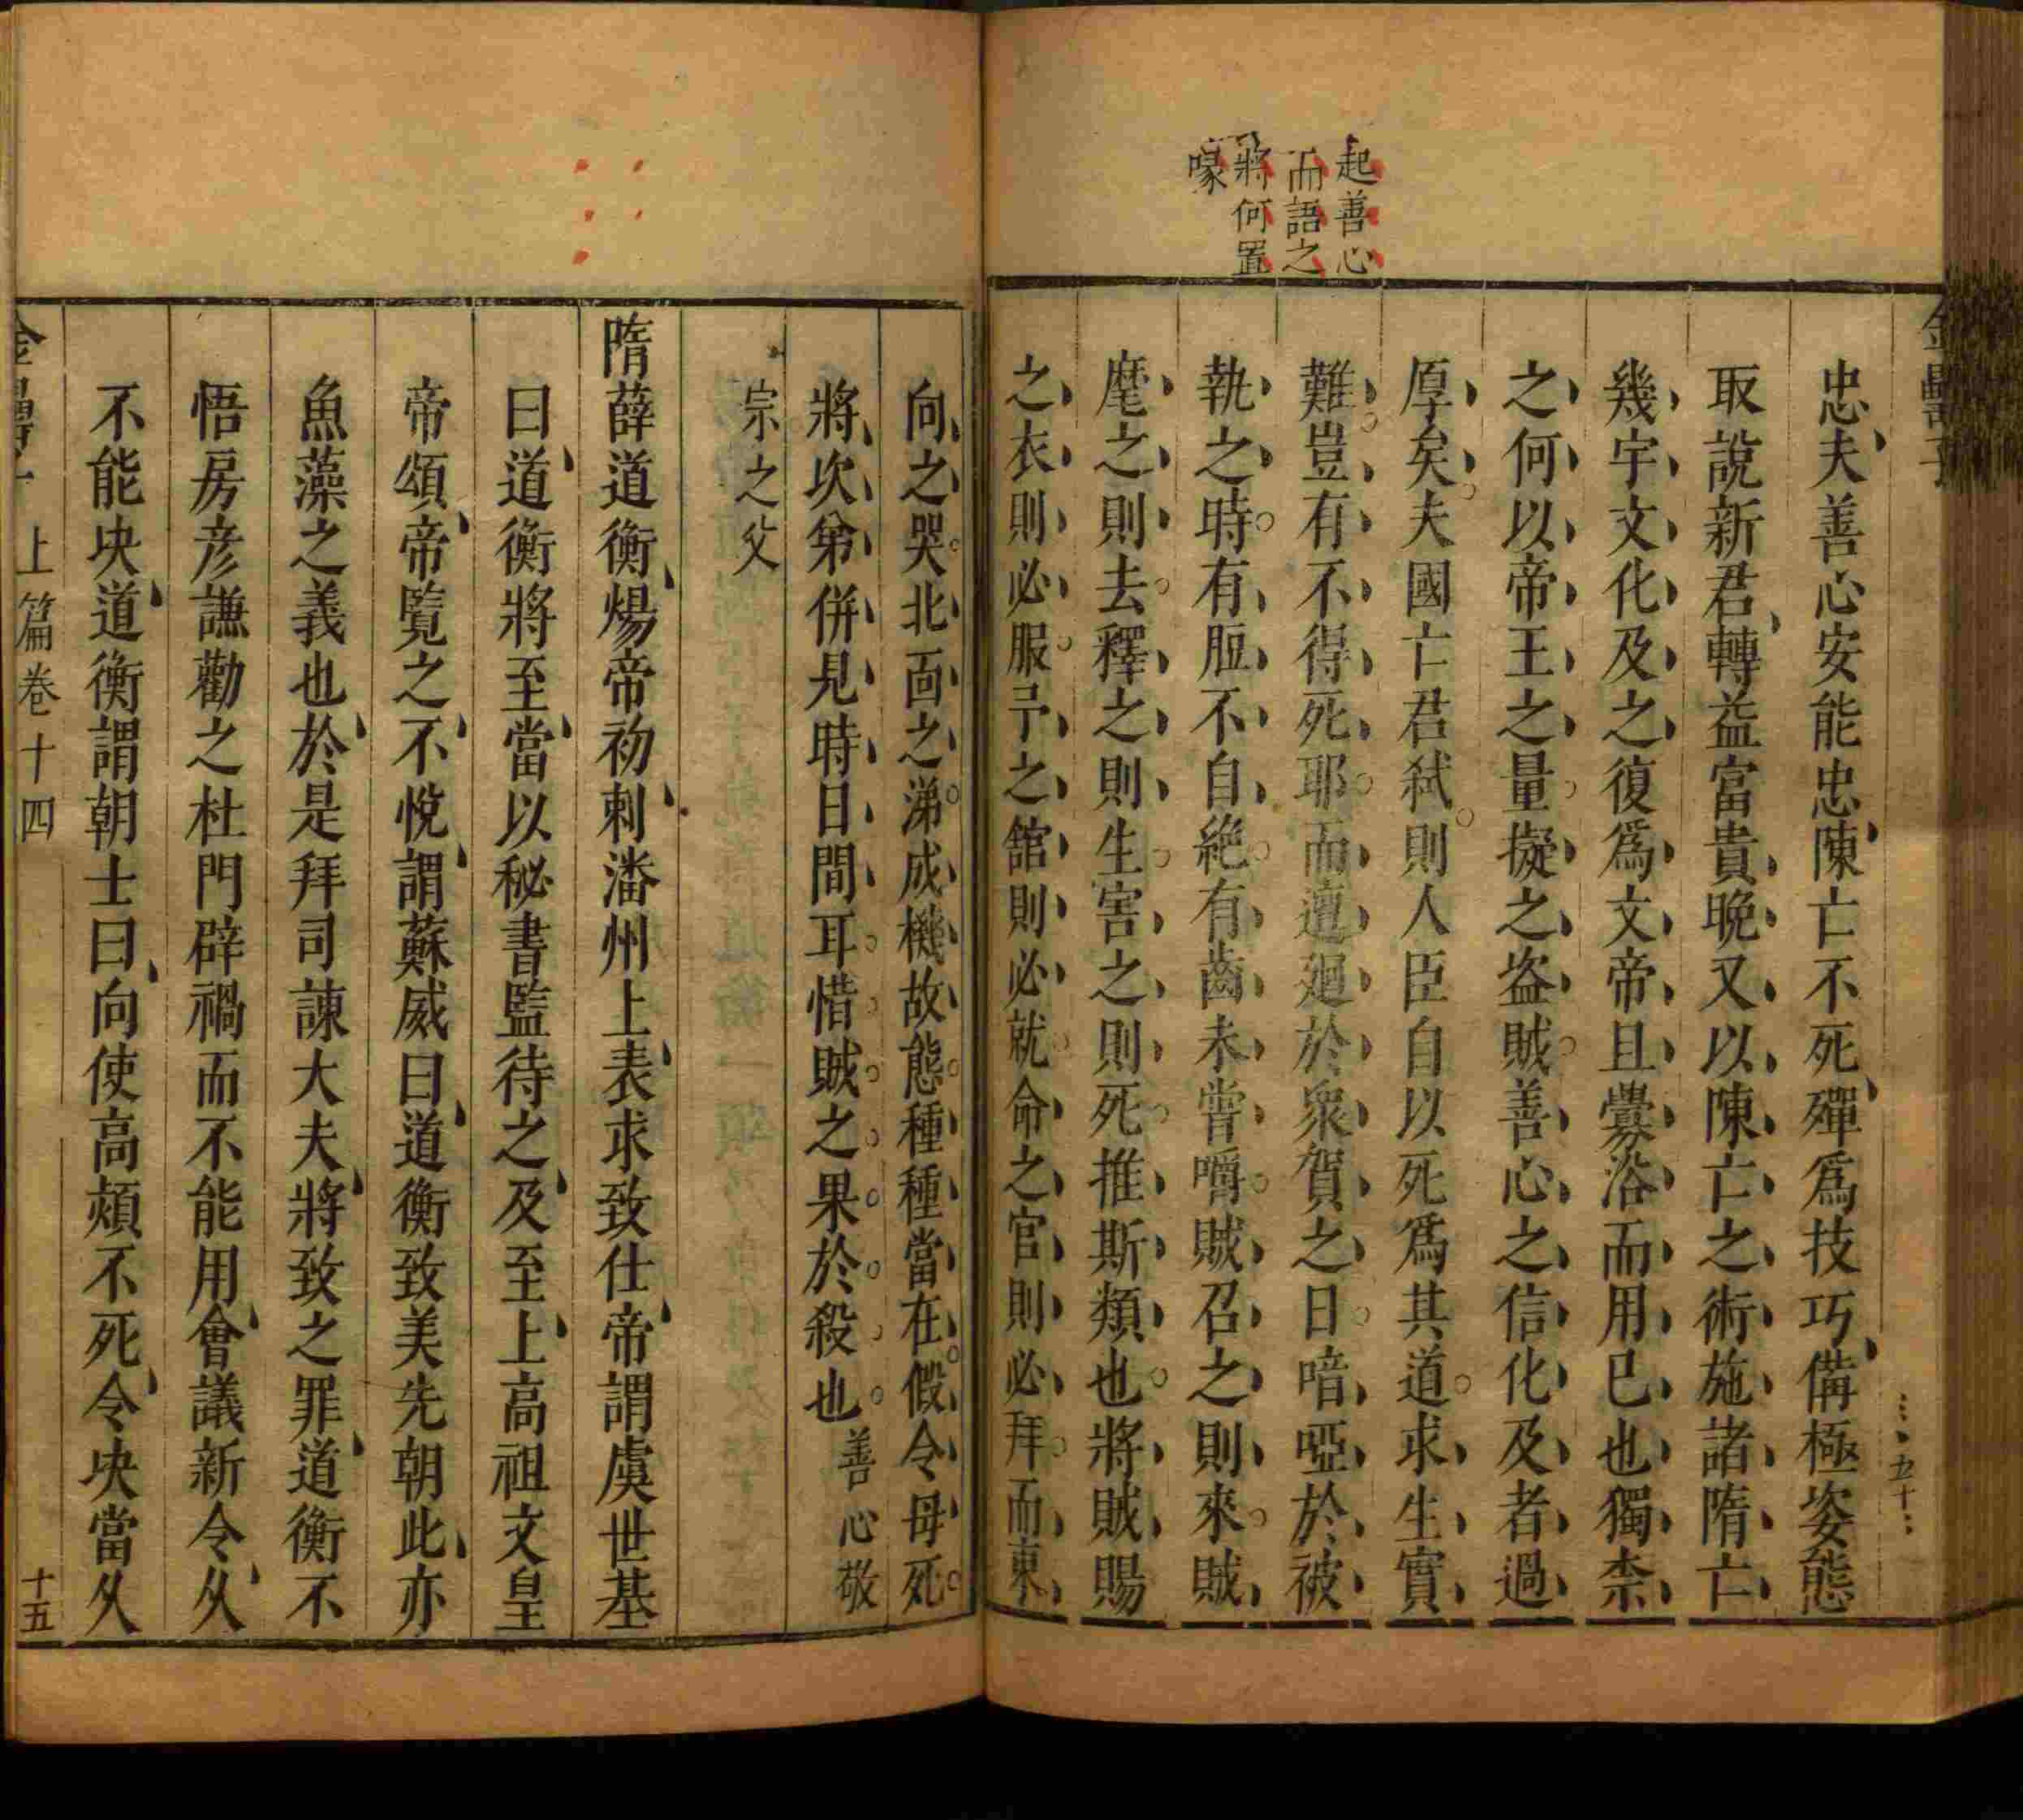 起善心
而語之
將何置
喙
忠夫善心安能忠陳亡不死殫爲技巧備極姿態
取説新君轉益富貴晚又以陳亡之術施諸隋亡
幾宇文化及之復爲文帝且釁浴而用已也獨柰
之何以帝王之量擬之盗賊善心之信化及者過
厚矣夫國亡君弑則人臣自以死爲其道求生實
難豈有不得死耶而邅廻於衆賀之日喑啞於被
執之時有脰不自絶有齒未嘗嚼賊召之則來賊
麾之則去釋之則生害之則死推斯類也將賊賜
之衣則必服予之舘則必就命之官則必拜而東
向之哭北面之涕成機故態種種當在假令母死
將次第併見時日間耳惜賊之果於殺也善心敬
宗之父
隋薛道衡煬帝初刺潘州上表求致仕帝謂虞世基
曰道衡將至當以秘書監待之及至上高祖文皇
帝頌帝覧之不悅謂蘇威曰道衡致美先朝此亦
魚藻之義也於是拜司諫大夫將致之罪道衡不
悟房彦謙勸之杜門辟禍而不能用會議新令久
不能决道衡謂朝士曰向使高熲不死令决當久
上篇卷十四
十五